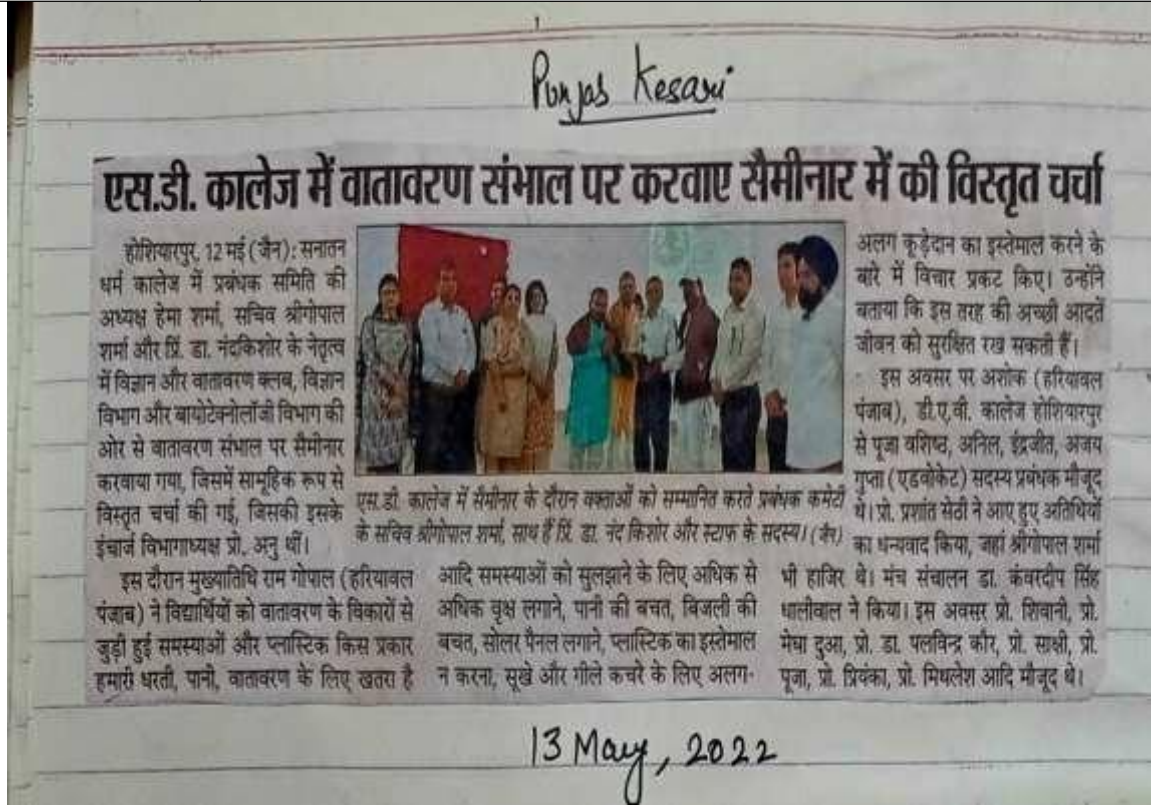 1
Punjab Kesari
एस.डी. कालेज में वातावरण संभाल पर करवाए सैमीनार में की विस्तृत चर्चा
होशियारपुर, 12 मई (जैन): सनातन
धर्म कालेज में प्रबंधक समिति की
अध्यक्ष हेमा शर्मा, सचिव श्रीगोपाल
शर्मा और प्रिं. डा. नंदकिशोर के नेतृत्व
में विज्ञान और वातावरण क्लब, विज्ञान
विभाग और बायोटेक्नोलॉजी विभाग की
ओर से वातावरण संभाल पर सैमीनार
करवाया गया, जिसमें सामूहिक रूप से
विस्तृत चर्चा की गई, जिसकी इसके
इंचार्ज विभागाध्यक्ष प्रो. अनु थीं।
इस दौरान मुख्यातिथि राम गोपाल (हरियावल
पंजाब) ने विद्यार्थियों को वातावरण के विकारों से
जुड़ी हुई समस्याओं और प्लास्टिक किस प्रकार
हमारी धरती, पानी, वातावरण के लिए खतरा है
एस.डी. कालेज में सैमीनार के दौरान वक्ताओं को सम्मानित करते प्रबंधक कमेटी
के सचिव श्रीगोपाल शर्मा, साथ हैं प्रिं. डा. नंद किशोर और स्टाफ के सदस्य। (जैन)
आदि समस्याओं को सुलझाने के लिए अधिक से
अधिक वृक्ष लगाने, पानी की बचत, बिजली की
बचत, सोलर पैनल लगाने, प्लास्टिक का इस्तेमाल
न करना, सूखे और गीले कचरे के लिए अलग-
अलग कूड़ेदान का इस्तेमाल करने के
बारे में विचार प्रकट किए। उन्होंने
बताया कि इस तरह की अच्छी आदतें
जीवन को सुरक्षित रख सकती हैं।
इस अवसर पर अशोक (हरियावल
पंजाब), डी.ए.वी. कालेज होशियारपुर
से पूजा वशिष्ठ, अनिल, इंद्रजीत, अजय
गुप्ता (एडवोकेट) सदस्य प्रबंधक मौजूद
थे। प्रो. प्रशांत सेठी ने आए हुए अतिथियों
का धन्यवाद किया, जहां श्रीगोपाल शर्मा
भी हाजिर थे। मंच संचालन डा. कंवरदीप सिंह
धालीवाल ने किया। इस अवसर प्रो. शिवानी, प्रो.
मेघा दुआ, प्रो. डा. पलविन्द्र कौर, प्रो. साक्षी, प्रो.
पूजा, प्रो. प्रियंका, प्रो. मिथलेश आदि मौजूद थे।
13 May, 2022